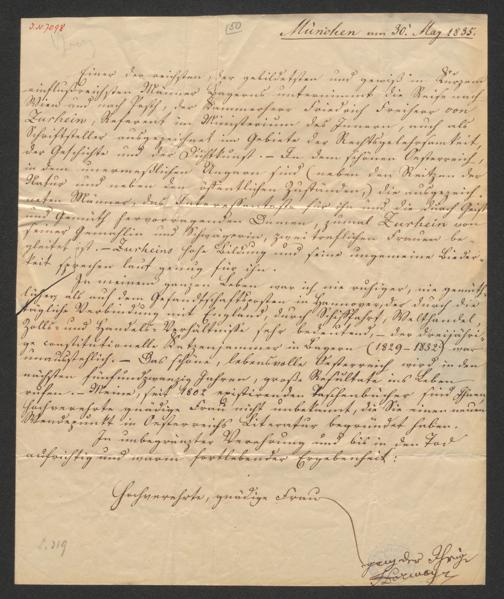 J.N. 7098
50
München am 30.' May 1835.
Einer der reichsten, der gebildetsten und gewiß in Kurzem
einflußreichsten Männer Bayerns unternimmt die Reise nach
Wien und nach Pesth, der Kammerherr Friedrich Freiherr von
Zurhein, Referent im Ministerium des Innern, auch als
Schriftsteller ausgezeichnet im Gebiete der Rechtsgelehrsamkeit,
der Geschichte und der Dichtkunst. – In dem schönen Oesterreich,
in dem unermeßlichen Ungarn sind (neben den Reitzen der
Natur und neben den öffentlichen Zuständen,) die ausgezeich-
neten Männer, das Interessanteste für ihn und die durch Geist
und Gemüth hervorragenden Damen, zumal Zurhein von
seiner Gemahlin und Schwägerin, zwei trefflichen Frauen be-
gleitet ist. – Zurheins hohe Bildung und seine ungemeine Bieder-
keit sprechen laut genug für ihn.
In meinem ganzen Leben war ich nie ruhiger, nie gemüth-
licher als auf dem Gesandtschaftsposten in Hannover, der durch die
tägliche Verbindung mit England, durch Schifffahrt, Welthandel,
Zoll- und Handels-Verhältnisse sehr bedeutend. – der dreijähri-
ge constitutionelle Katzenjammer in Bayern (1829–1832) war
unausstehlich. – Das schöne, lebensvolle Oesterreich wird in den
nächsten fünfundzwanzig Jahren, große Resultate ins Leben
rufen. – Meine, seit 1802 existirenden Taschenbücher sind Ihnen
hochverehrte gnädige Frau nicht unbekannt, die Sie einen neuen
Wendepunkt in Oesterreichs Literatur begründet haben.
In unbegränzter Verehrung und bis in den Tod
aufrichtig und warm fortlebender Ergebenheit:
Hochverehrte, gnädige Frau
ganz der Ihrige
Hormayr